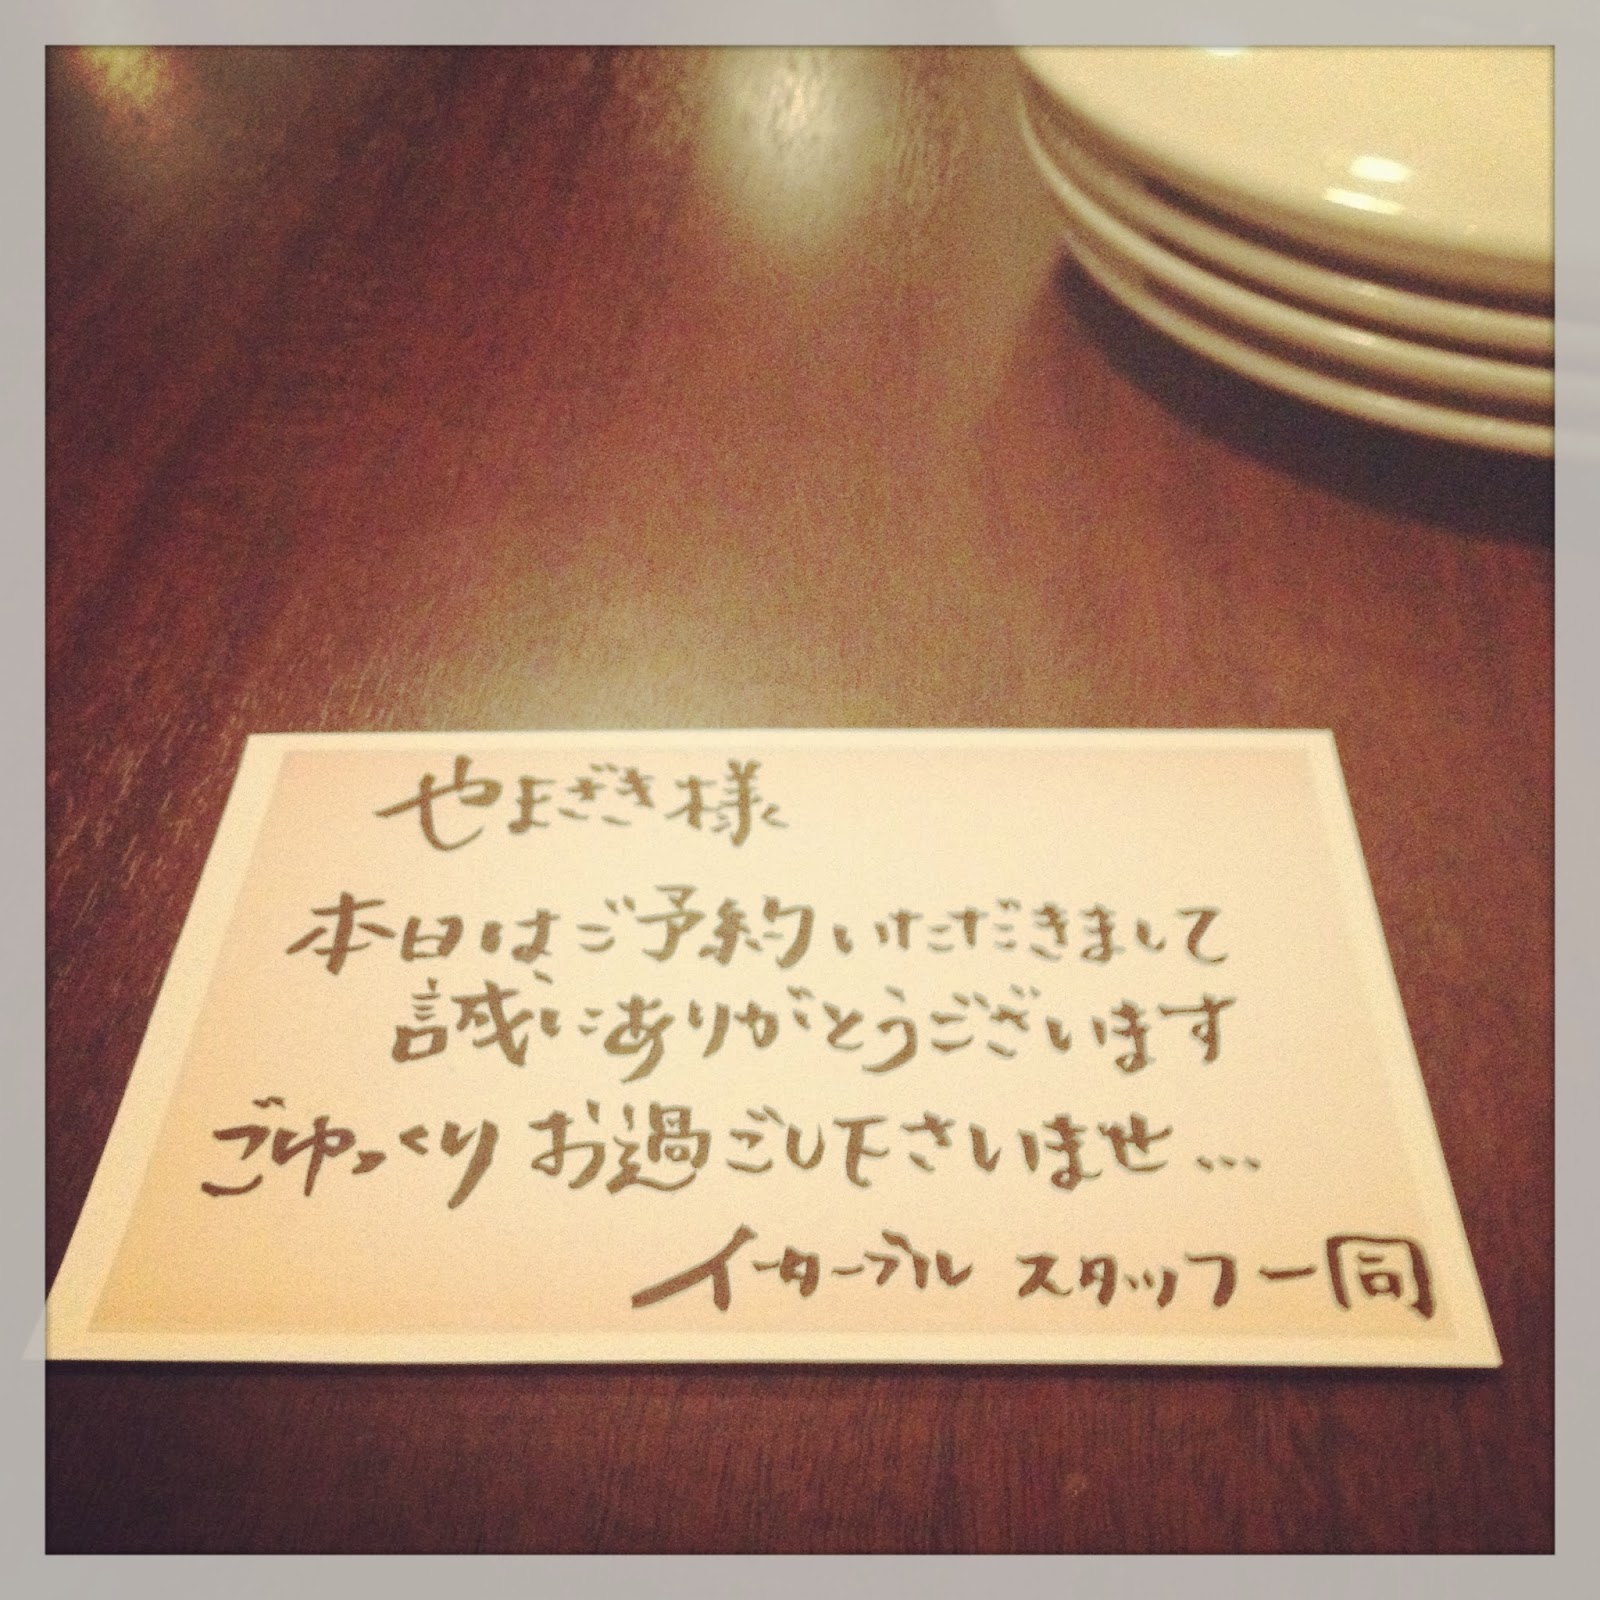 やまざき様
本日はご予約いただきまして
誠にありがとうございます
ごゆっくりお過ごし下さいませ…
イーターブル スタッフ一同